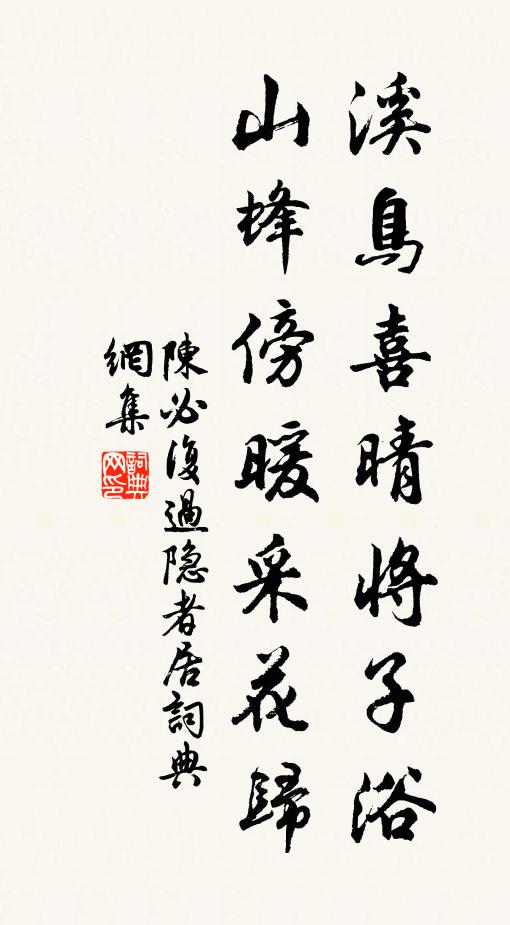 溪鳥喜晴將子浴
山蜂傍暖采花歸
陳必復過隐者居詞典
網集
詞典網印